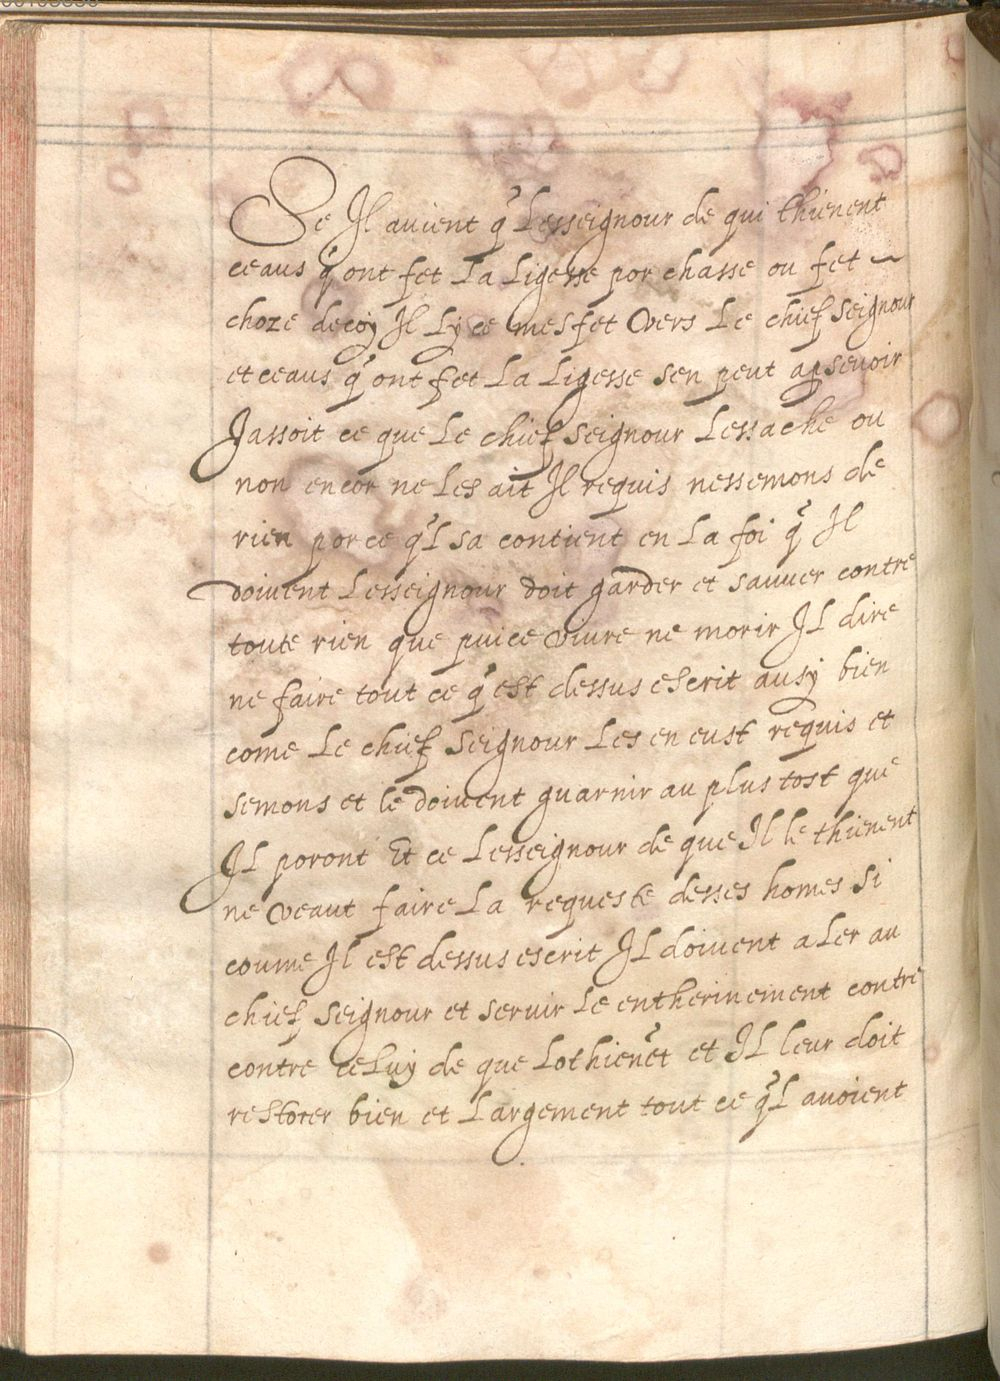 Se Il auient q̃ Lesseignour de qui thienent
ceaus q̃ ont fet La Ligesse por chasse ou fet
choze decoy Il Ly ce mesfet vers Le chief seignour
et ceaus q̃ ont fet La Ligesse sen peut apsevoir
Jassoit ce que Le chief seignour Lessache ou
non encor ne Les ait Il requis nessemons de
rien por ce q̃L sa contient en La foi q̃ Il
doivent Lesseignour doit garder et sauver contre
toute rien que puice vivre ne morir IL dire
ne faire tout ce q̃ est dessus escrit ausy bien
come Le chief seignour Les en eust requis et
semons et le doivent guarnir au plus tost que
IL poront Et ce Lesseignour de que Il le thienent
ne veaut faire La requeste desses homes si
coume Il est dessus escrit IL doivent aLer au
chief seignour et servir Le entherinement contre
contre ceLuy de que Lothienẽt et IL leur doit
restorer bien et Largement tout ce q̃L avoient